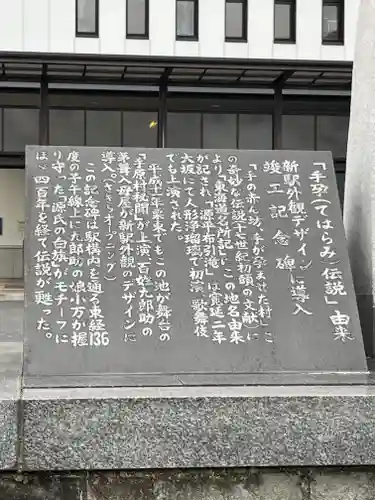 「手孕(てはらみ)伝説」由来
新駅外観デザインに導入
竣工記念碑
「手の赤ん坊、手が孕ませた村」こ
の奇妙な伝説十七世紀初頭の文献に
より、「東海道名所記」この地名由来
が記され「源平布引滝」は寛延二年
大坂にて人形浄瑠璃で初演、歌舞伎
でも上演された。
平成十二年栗東でもこの池が舞台の
「手原村秘聞」が上演、百姓九郎助の
茅葺き母屋が新駅外観のデザインに
導入(さきらオープニング)
この記念碑は駅構内を通る東経136
度の子午線上に九郎助の娘小万が握
り守った「源氏の白旗」がモチーフに
ほゞ四百年を経て伝説が甦った。